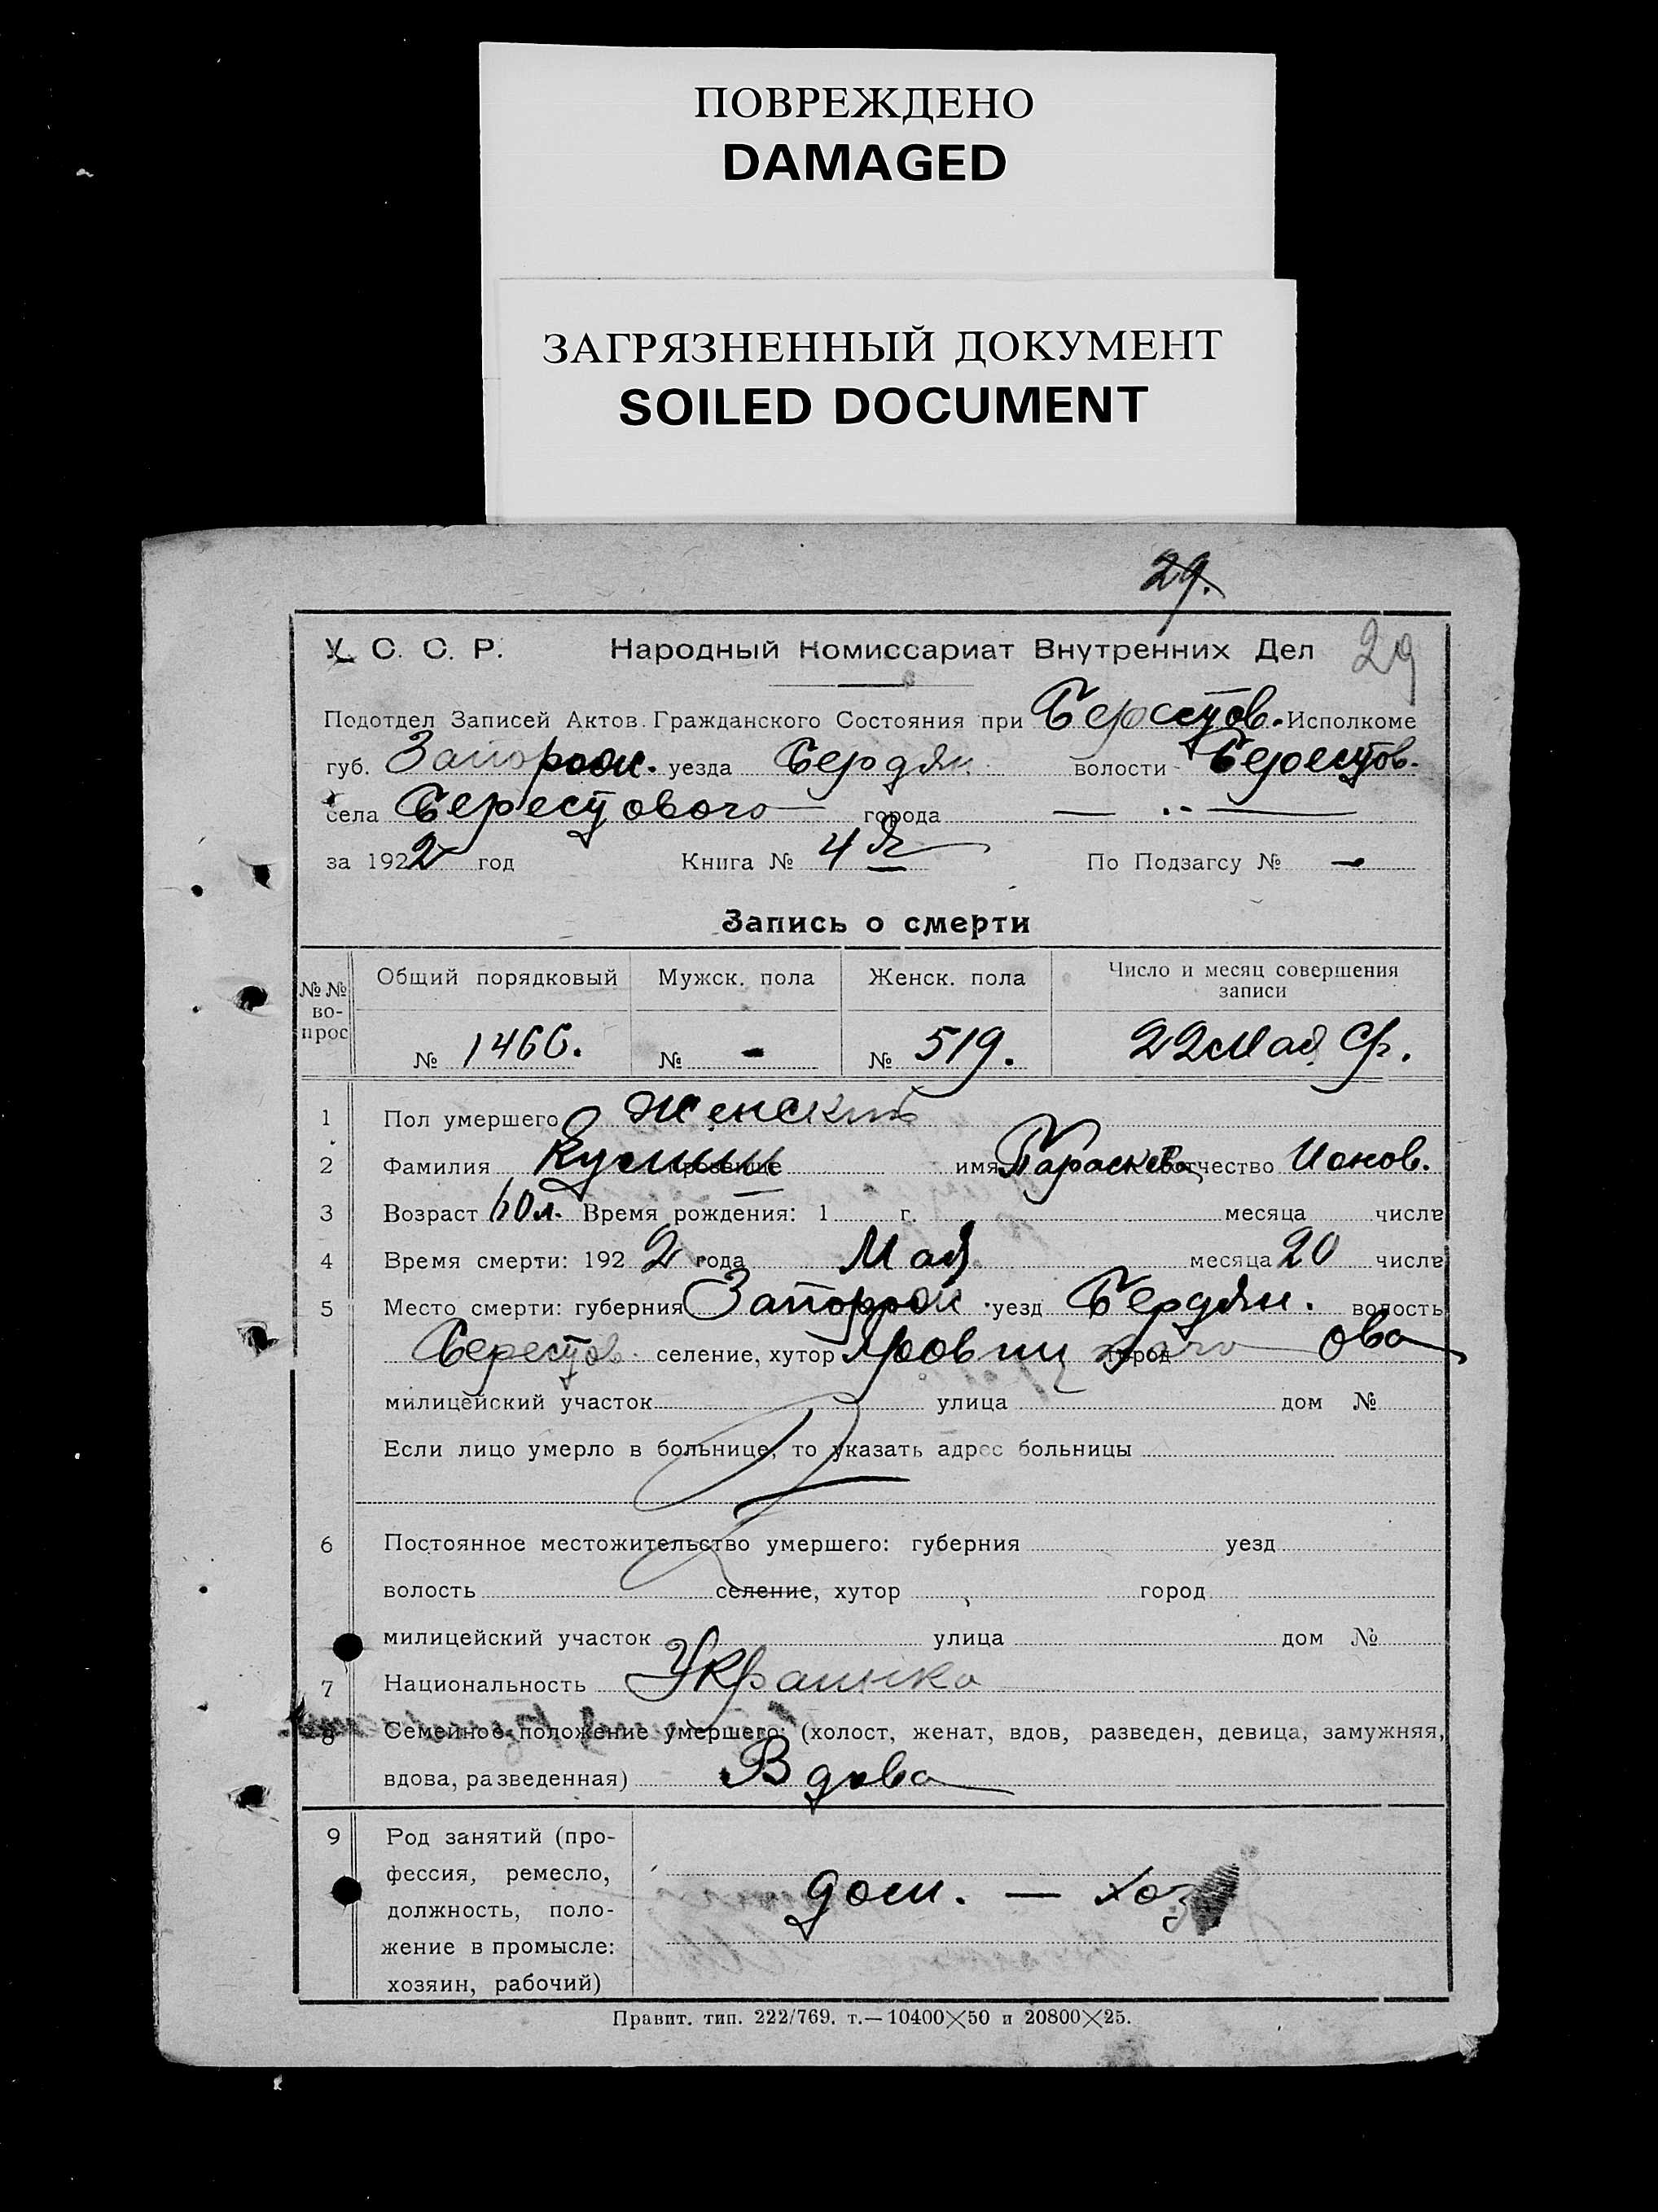 ПОВРЕЖДЕНО
DAMAGED
ЗАГРЯЗНЕННЫЙ ДОКУМЕНТ
SOILED DOCUMENT
29.
У. С. С. Р. Народный Комиссариат Внутренних Дел 29
Подотдел Записей Актов Гражданского Состояния при Берестов. Исполкоме
губ. Запорож. уезда Бердян. волости Берестов.
села Берестового города
за 1922 год Книга № 4 По Подзагсу № —
Запись о смерти
№№ во-прос Общий порядковый Мужск. пола Женск. пола Число и месяц совершения записи
№ 1466. № - № 519. 22 Мая
1 Пол умершего Женский
2 Фамилия прозвище имя Параскева отчество Ионов.
3 Возраст 60 л. Время рождения: 1 г. месяца числа
4 Время смерти: 1922 года Мая месяца 20 числа
5 Место смерти: губерния Запорож. уезд Бердян. волость
Берестов. селение, хутор город
милицейский участок улица дом №
Если лицо умерло в больнице, то указать адрес больницы
6 Постоянное местожительство умершего: губерния уезд
волость селение, хутор город
милицейский участок улица дом №
7 Национальность Украинка
8 Семейное положение умершего: (холост, женат, вдов, разведен, девица, замужняя,
вдова, разведенная) Вдова
9 Род занятий (про-
фессия, ремесло,
должность, поло-
жение в промысле:
хозяин, рабочий)
дом. — хоз
Правит. тип. 222/769. т.—10400×50 и 20800×25.